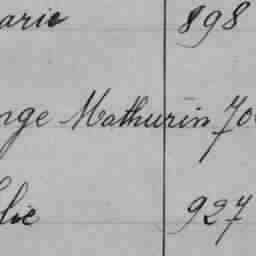 arie 898
nge Mathurin 70
lie 927